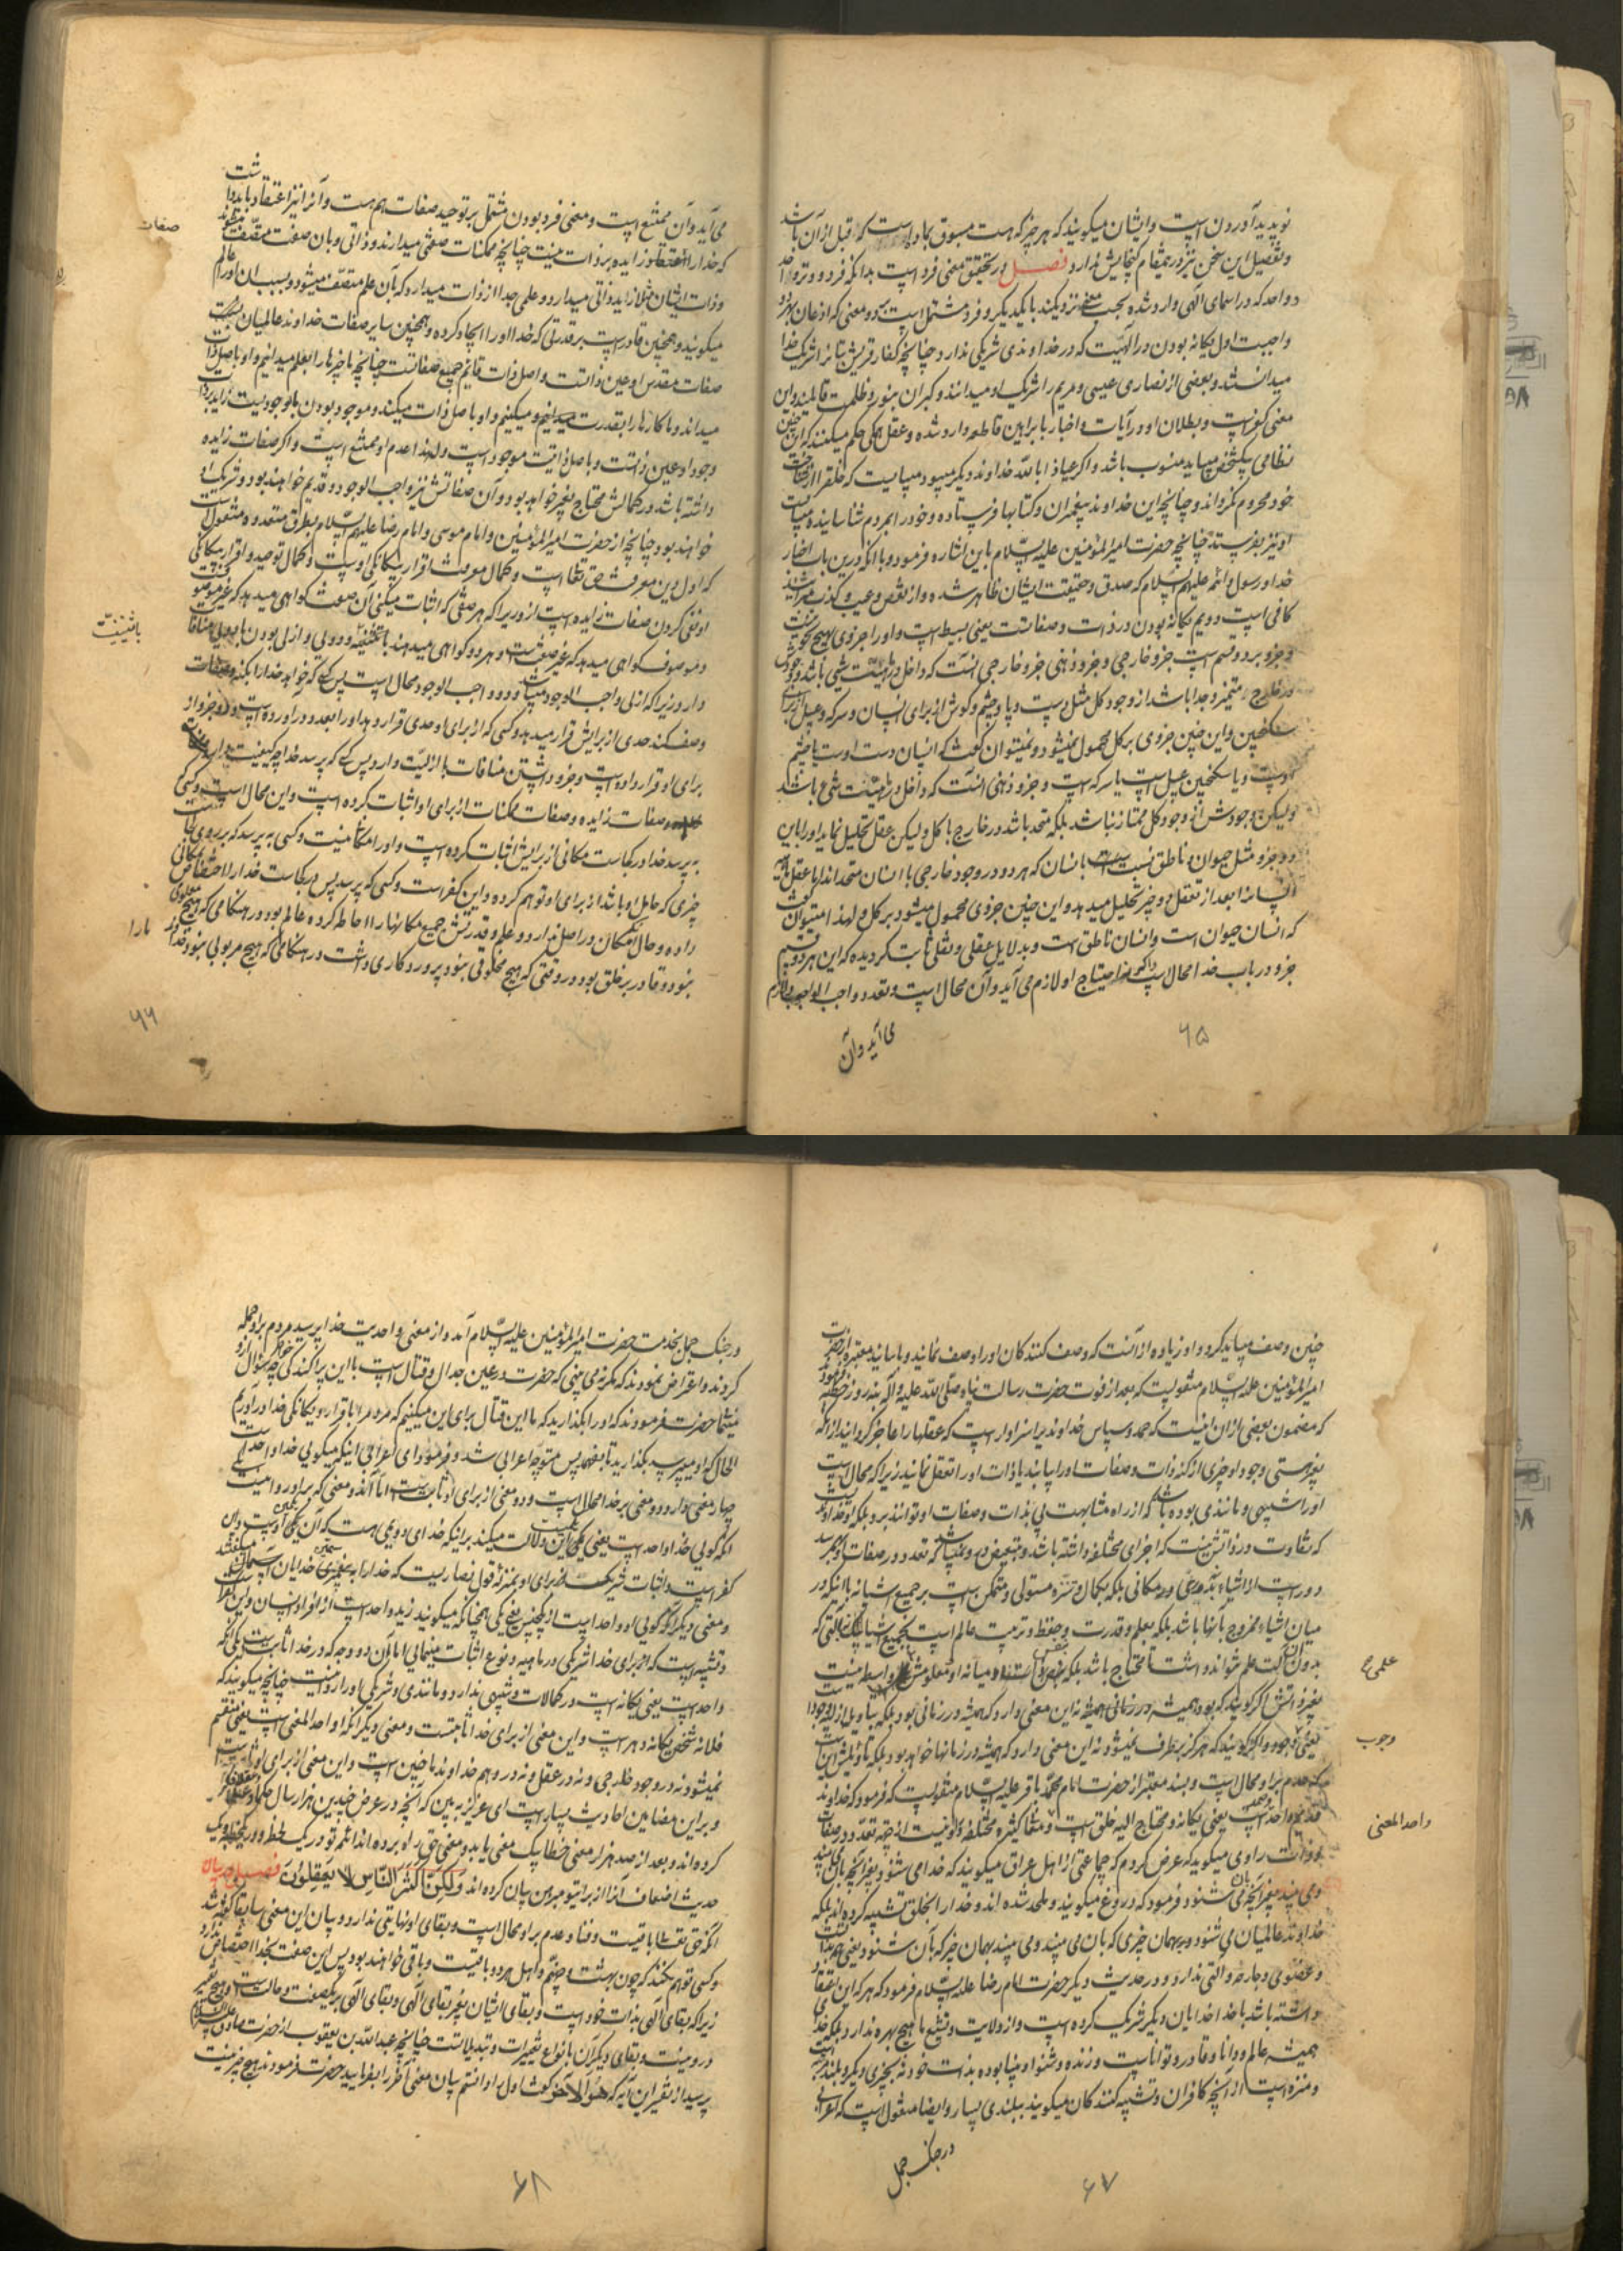 نو پدید آوردن است و ایشان میگویند که هر چیز که هست مسبوق بماده است که قبل از آن باشد
و تفصیل این سخن نیز درین مقام گنجایش ندارد فصل در تحقیق معنی فرد است بدانکه فرد و وتر و احد
و واحد که در اسمای الهی وارد شده بحسب معنی نزدیکند بایکدیگر و فرد مشتمل است بر دو معنی که اذعان بهر دو
واجبست اول یگانه بودن در الهیت که در خداوندی شریکی ندارد چنانچه کفار قریش بتانرا شریک خدا
میدانستند و بعضی از نصاری عیسی و مریم را شریک او میدانند و گبران بنور و ظلمت قائلند و این
معنی کفر است و بطلان او در آیات و اخبار با براهین قاطعه وارد شده و عقل حکم میکند که این چنین
نظامی بیکشخص میباید منسوب باشد و اگر عیاذا بالله خداوند دیگر میبود میبایست که خلق را از
خود محروم نگرداند و چنانچه این خداوند پیغمبران و کتابها فرستاده و خود را بمردم شناسانیده میبایست
او نیز بفرستد چنانچه حضرت امیرالمؤمنین علیه السلام باین اشاره فرموده با آنکه درین باب اخبار
خدا و رسول و ائمه علیهم السلام که صدق و حقیقت ایشان ظاهر شده و از نقص و عیب و کذب مبرایند
کافی است دویم یگانه بودن در ذات و صفاتست یعنی بسیط است و او را جزوی بهیچ نحو نیست
و جزو بر دو قسم است جزو خارجی و جزو ذهنی جزو خارجی آنست که داخل در ماهیت شیئ باشد و وجودش
در خارج متمیز و جدا باشد از وجود کل مثل دست و پا و چشم و گوش از برای انسان و سرکه و عسل از برای
سکنجبین و این چنین جزوی بر کل محمول نمیشود و نمیتوان گفت که انسان دست اوست یا چشم
اوست و یا سکنجبین عسل است یا سرکه است و جزو ذهنی آنست که داخل در ماهیت شیئ باشد
و لیکن وجودش از وجود کل ممتاز نباشد بلکه متحد باشد در خارج با کل و لیکن عقل تحلیل نماید او را باین
دو جزو مثل حیوان و ناطق نسبت بانسان که هر دو در وجود خارجی با انسان متحداند اما عقل
انسانرا بعد از تعقل بدو چیز تحلیل میدهد و این چنین جزوی محمول میشود بر کل و لهذا میتوان گفت
که انسان حیوان است و انسان ناطق است و بدلایل عقلی و نقلی ثابت گردیده که این هر دو قسم
جزو در باب خدا محال است و الا احتیاج او لازم می آید و آن محال است و تعدد واجب الوجود لازم
می آید و آن
۶۵
می آید و آن ممتنع است و معنی فرد بودن مشتمل بر توحید صفات هم هست و آنرا نیز اعتقاد باید داشت
صفات
که خدا را زایده بر ذات نیست چنانچه ممکنات صفتی میدارند و ذاتی و بان صفت متصف میشوند
و ذات ایشان مثلا زاید ذاتی میدارد و علمی جدا از ذات میدارد که بآن علم متصف میشود و بسبب آن او را عالم
میگویند و همچنین قادر است بر قدرتی که خدا او را ایجاد کرده و همچنین سایر صفات خداوند عالمیان
صفات مقدس او عین ذاتست و اصل ذات قایم جمیع صفاتست چنانچه ما چیزها را بعلم میدانیم و او باصل ذات
میداند و ما کارها را بقدرت میکنیم و او باصل ذات میکند و موجود بودن ما بوجودیست زاید بر ذات
وجود او عین ذاتست و باصل ذات موجود است و لهذا عدم او ممتنع است و اگر صفات زایده
داشته باشد در کمالش محتاج بغیر خواهد بود و آن صفاتش نیز واجب الوجود و قدیم خواهند بود و شریک او
خواهند بود چنانچه از حضرت امیرالمؤمنین و امام موسی و امام رضا علیهم السلام بطرق متعدده منقول است
که اول دین معرفت حق تعالی است و کمال معرفت اقرار بیگانگی اوست و کمال توحید و اقرار بیگانگی
او نفی کردن صفات زایده است ازو زیرا که هر صفتی که اثبات میکنی آن صفت گواهی میدهد که غیر موصوفست
باثنینیت
و موصوف گواهی میدهد که غیر صفت است و هر دو گواهی میدهند و دویی و ازلی بودن با دویی منافات
دارد زیرا که ازلی واجب الوجود میباشد و دو واجب الوجود محال است پس کسی که خواهد خدا را بکنه و صفات
وصف کند حدی از برایش قرار میدهد و کسی که از برای او حدی قرار دهد او را بعدد در آورده است و اجزو از
برای او قرار داده است و جزو داشتن منافات با ازلیت دارد پس کسی که پرسد خدا چه کیفیت دارد
صفات زایده و صفات ممکنات از برای او اثبات کرده است و این محال است و کسی
که پرسد خدا در کجاست مکانی از برایش اثبات کرده است و او را مکانی نیست و کسی که پرسد که بر روی
چیزی که حامل او باشد از برای او توهم کرده و این کفر است و کسی که پرسد پس در کجاست خدا را اختصاص بمکانی
داده و حال آنکه مکان در اصل ندارد و علم و قدرتش جمیع مکانها را احاطه کرده عالم بود در هنگامی که هیچ معلومی
نبود و قادر بر خلق بود در وقتی که هیچ مخلوقی نبود پروردگاری داشت در هنگامی که هیچ مربوبی نبود
۶۶
چنین وصف میباید کرد و او زیاده از آنست که وصف کنندگان او را وصف نمایند و باسانید معتبره از حضرت
امیرالمؤمنین علیه السلام منقولست که بعد از فوت حضرت رسالت پناه صلی الله علیه و آله به نه روز خطبه فرمود
که مضمون بعضی از آن اینست که حمد و سپاس خداوندیرا سزاوار است که عقلها را عاجز گردانید از آنکه
بغیر هستی وجود او چیزی از کنه ذات و صفات او را بیابند یا ذات او را تعقل نمایند زیرا که محال است
او را شبیهی و مانندی بوده باشد که از راه مشابهت پی بذات و صفات او توانند برد بلکه او خداوندیست
که تفاوت در ذاتش نیست که اجزای مختلفه داشته باشد و متبعض نمیباشد که تعدد در صفات او بهمرسد
دور است از اشیاء نه بدوری مکانی بلکه بکمال و تنزه مستولی و متمکن است بر جمیع اشیا نه با آنکه در
میان اشیاء ممزوج بآنها باشد بلکه بعلم و قدرت و حفظ و تربیت عالم است بجمیع اشیاء نه بآلتی که
علمی ح
بدون آن آلت علم نتواند داشت تا محتاج باشد بلکه میانه او و معلومش واسطه نیست
بغیر ذاتش اگر گویند که بود همیشه در زمانی همیشه نه این معنی دارد که همیشه در زمانی بود بلکه بتأویل ازلیه وجود
وجوب
یعنی وجود و اگر گویند که هرگز برطرف نمیشود نه این معنی دارد که همیشه در زمانها خواهد بود بلکه تأویلش اینست
که عدم بر او محال است و بسند معتبر از حضرت امام محمد باقر علیه السلام منقولست که فرمود که خداوند
واحد المعنی
قدیم واحد است یعنی یگانه و محتاج الیه خلق است و معانی کثیره مختلفه در او نیست از جهة تعدد در صفات
و ذات راوی میگوید که عرض کردم که جماعتی از اهل عراق میگویند که خدا می شنود بغیر آنچه بآن میبیند
و می بیند بغیر آنچه بآن می شنود فرمود که دروغ میگویند و ملحد شده اند و خدا را بخلق تشبیه کرده اند بلکه
خداوند عالمیان می شنود بهمان چیزی که بآن می بیند و می بیند بهمان چیز که بآن شنود یعنی
و عضوی و جارحه و آلتی ندارد و در حدیث دیگر حضرت امام رضا علیه السلام فرمود که هر که این اعتقاد
داشته باشد با خدا خدایان دیگر شریک کرده است و از ولایت و تشیع ما هیچ بهره ندارد بلکه خدا
همیشه عالم و دانا و قادر و توانا است و زنده و شنوا و بینا بوده بذات خود نه بچیزی دیگر و بلند است
و منزه است از آنچه کافران و تشبیه کنندگان میگویند ببلندی بسیار و ایضا منقول است که اعرابی
در جنک جمل
۶۷
در جنک جمل بخدمت حضرت امیرالمؤمنین علیه السلام آمد و از معنی واحدیت خدا پرسید مردم بر او حمله
کردند و اعتراض نمودند که مگر نمی بینی که حضرت در عین جدال و قتال است با این پراکندگی خواطر چه سؤال ازو
مینمایی حضرت فرمودند که او را بگذارید که ما این قتال برای این میکنیم که مردم را باقرار بیگانگی خدا در آوریم
الحال که او میپرسد بگذارید تا بفهمد پس متوجه اعرابی شد و فرمود ای اعرابی اینکه میگویی خدا واحد است
چهار معنی دارد دو معنی بر خدا محال است و دو معنی از برای او ثابت است اما آن دو معنی که بر او روا نیست
آنکه گویی خدا واحد است یعنی یکی این دلالت میکند بر اینکه خدای دویمی هست که آن یکی اوست و این
کفر است و اثبات شریک برای او بمنزله قول نصاریست که خدا را سیمین خدایان میگفتند
و معنی دیگر آنکه گویی او واحد است از یکجنس یعنی یکی همچنانکه میگویند زید واحد است از افراد انسان و این
و تشبیه است که از برای خدا شریکی در ماهیه و نوع اثبات مینمایی اما آن دو وجه که در خدا ثابت است یکی آنکه
واحد است یعنی یگانه است در کمالات و شبیهی ندارد و مانندی و شریکی او را نیست چنانچه میگویند که
فلانه شخص یگانه دهر است و این معنی از برای خدا ثابتست و معنی دیگر آنکه او احد المعنی است یعنی منقسم
نمیشود نه در وجود خارجی و نه در عقل و نه در وهم خداوند ما چنین است و این معنی از برای او ثابت است
و بر این مضامین احادیث بسیار است ای عزیز ببین که آنچه در عرض چندین هزار سال حکما و عقلا فکر
کرده اند و بعد از صد هزار معنی خطا یک معنی یا بدو معنی حق راه برده اند ائمه تو در یک لحظه و در یک
حدیث اضعاف آنرا از برای تو مبرهن بیان کرده اند ولکن اکثر الناس لا یعقلون فصل در بیان
آنکه حق تعالی باقیست و فنا و عدم بر او محال است و بقای او نهایتی ندارد و بیان این معنی سابقا گفته شد
و کسی توهم نکند که چون بهشت و جهنم و اهل هر دو باقیست و باقی خواهند بود پس این صفت بخدا اختصاص ندارد
زیرا که بقای الهی بذات خود است و بقای ایشان بغیر بقای الهی و بقای الهی بر یکصفت و حالت است و هیچ تغییر
درو نیست و بقای دیگران بانواع تغییرات و تبدیلاتست چنانچه عبدالله بن یعقوب از حضرت صادق علیه السلام
پرسید از تفسیر این آیه که هو الاول و الآخر گفت اول را دانستم بیان معنی آخر را بفرمایید حضرت فرمودند هیچ چیز نیست
۶۸